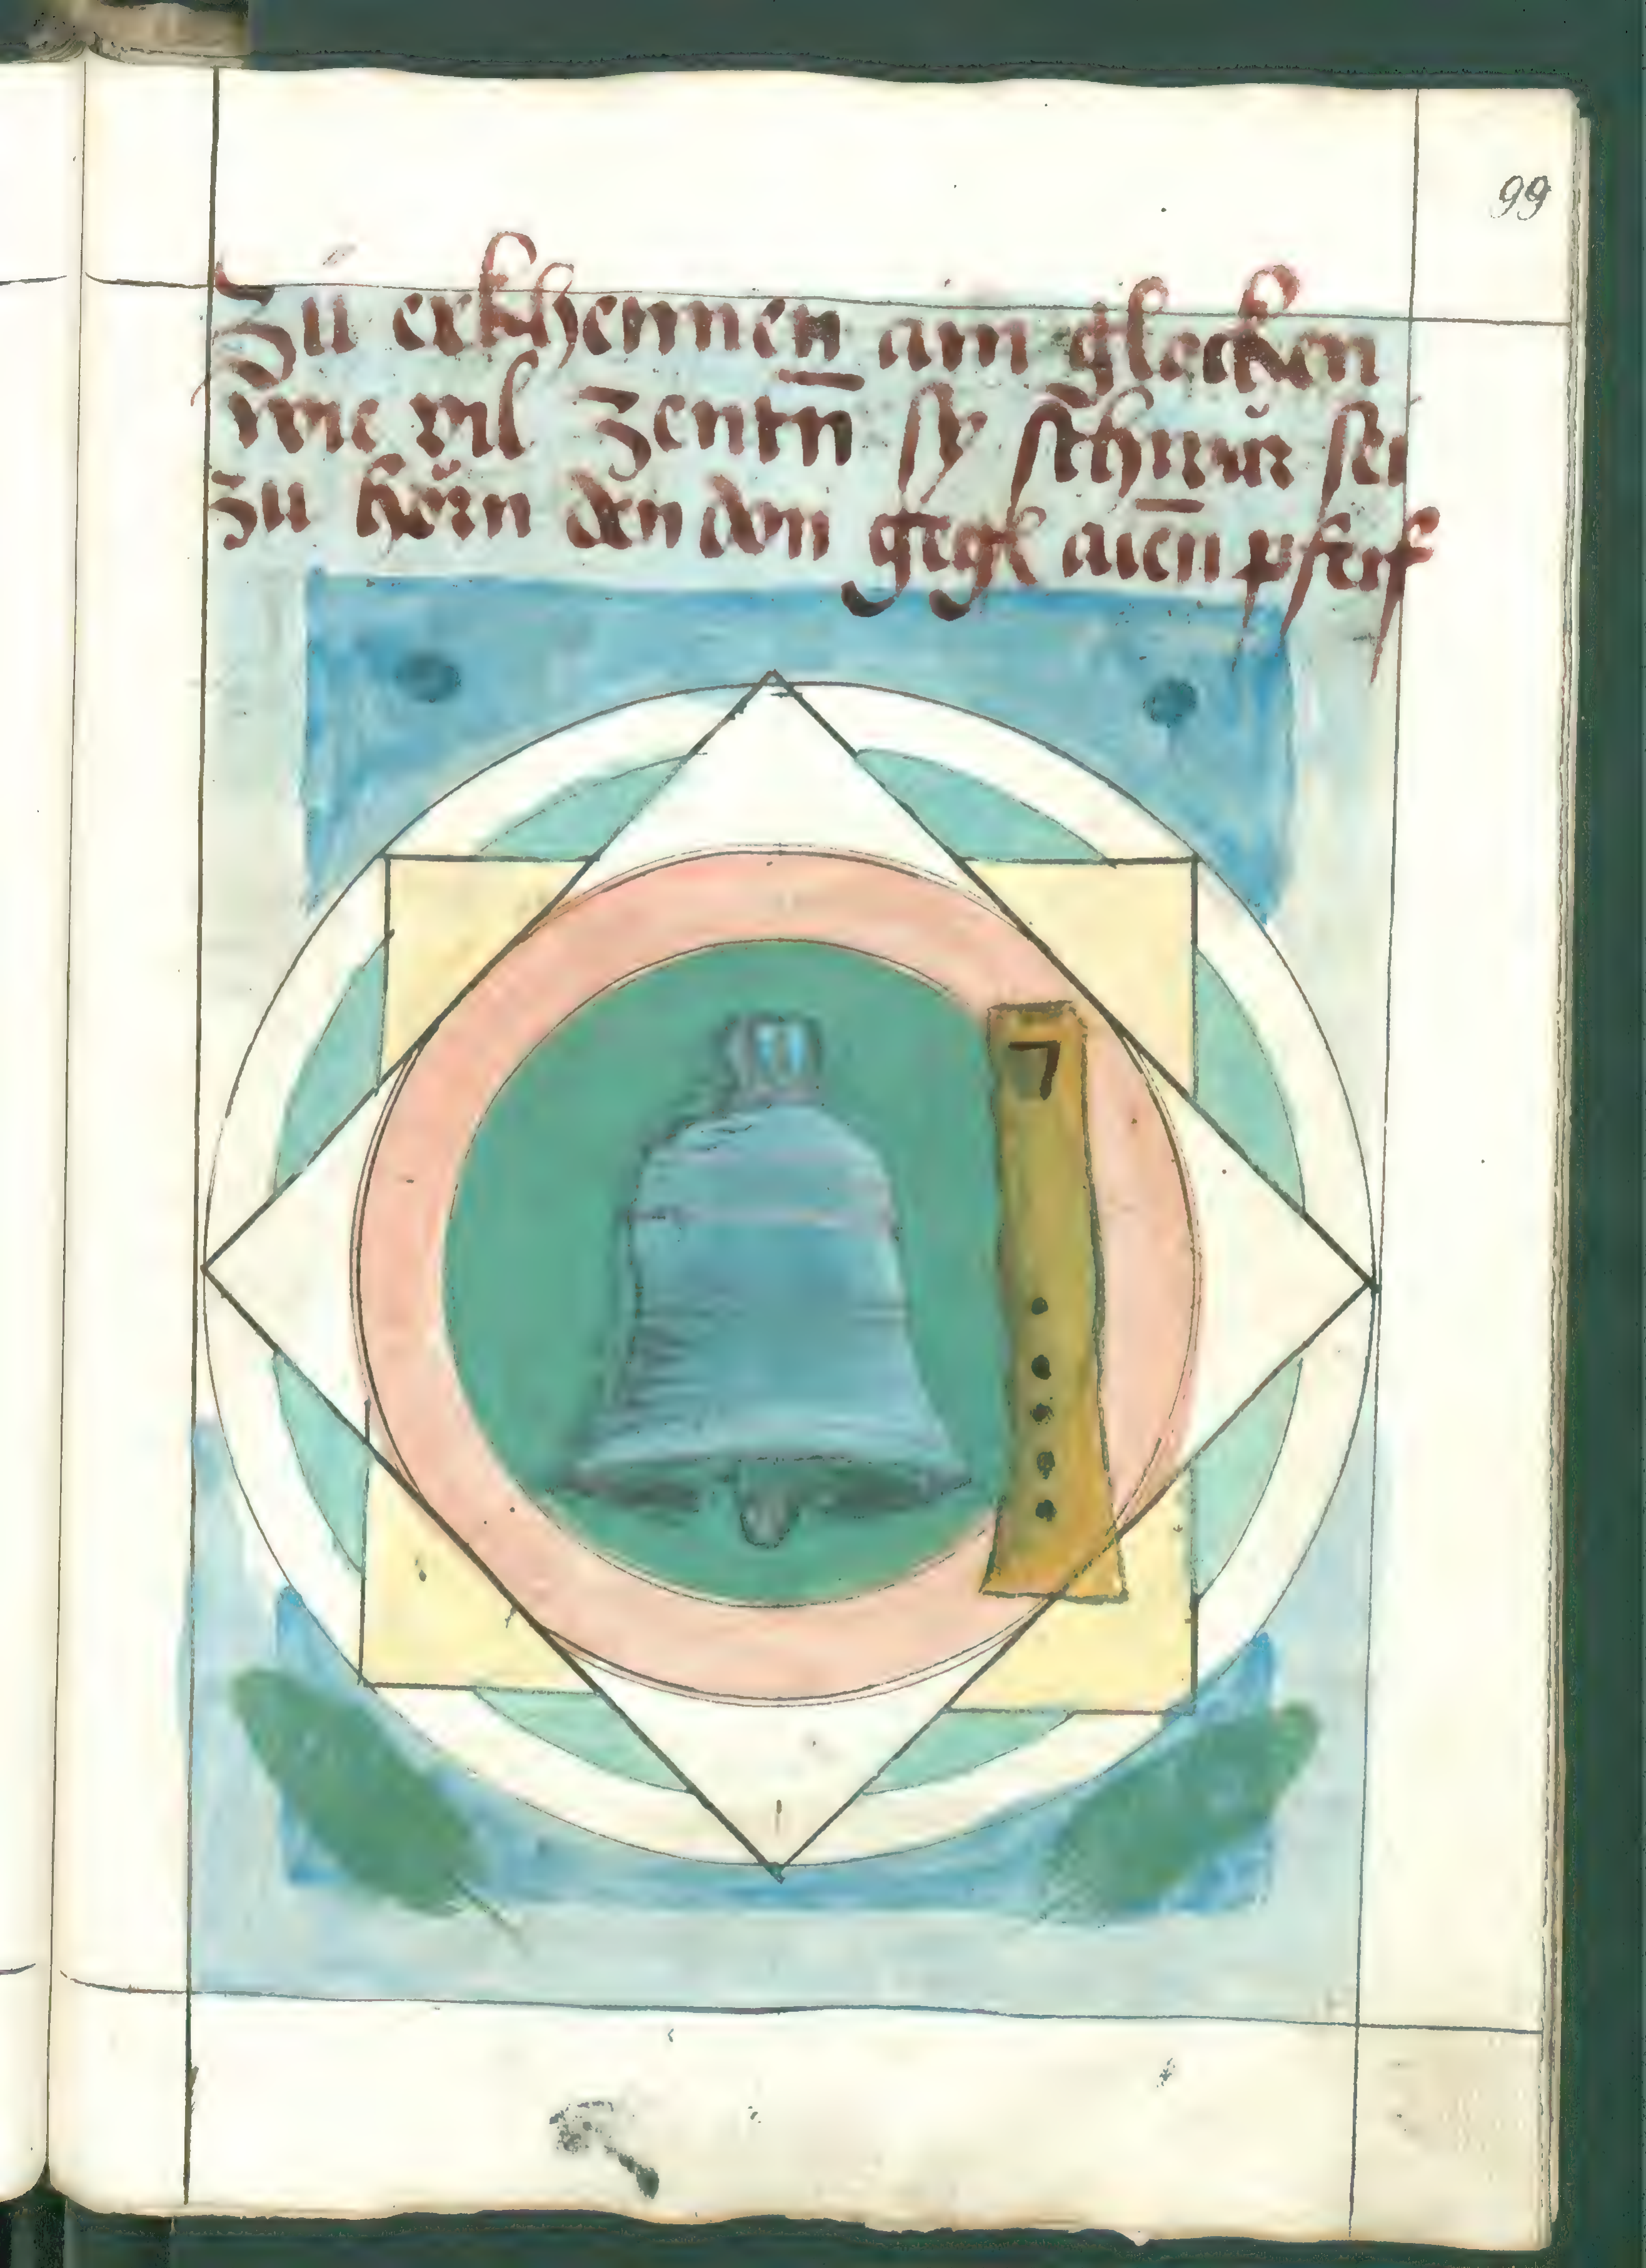 99
Zú erkhennen̄ ain glocken
wie vil Zentn̄ sy schwär sei
zu hörn den don gegk aien̄ pfeif